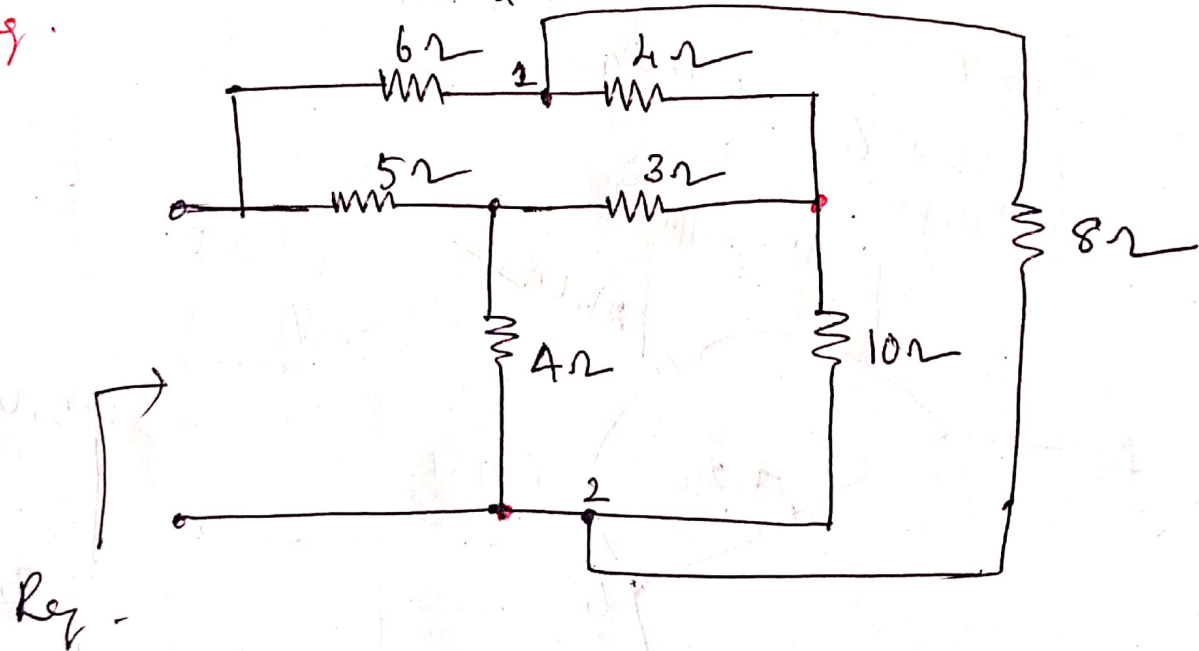 6Ω
1
4Ω
5Ω
3Ω
8Ω
4Ω
10Ω
2
Req.